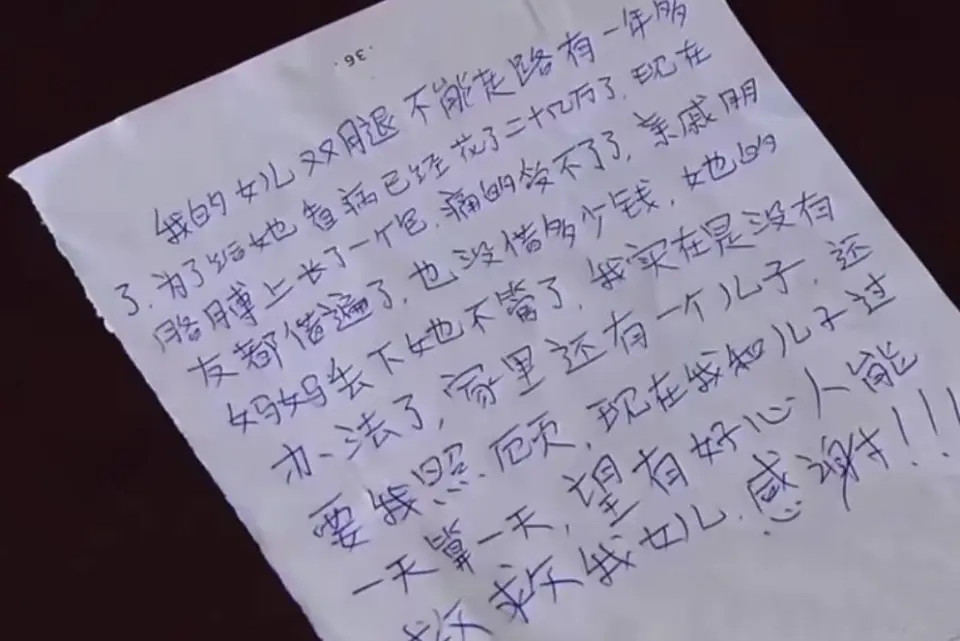 36.
我的女儿双腿不能走路有一年多
了.为了给她查病已经花了二十几万了.现在
胳膊上长了一个包.痛的受不了了.亲戚朋
友都借遍了.也没借多少钱.她的
妈妈丢下她也不管了.我实在是没有
办法了,家里还有一个儿子.还
要我照顾,现在我和儿子过
一天算一天,望有好心人能
救救我女儿.感谢!!!